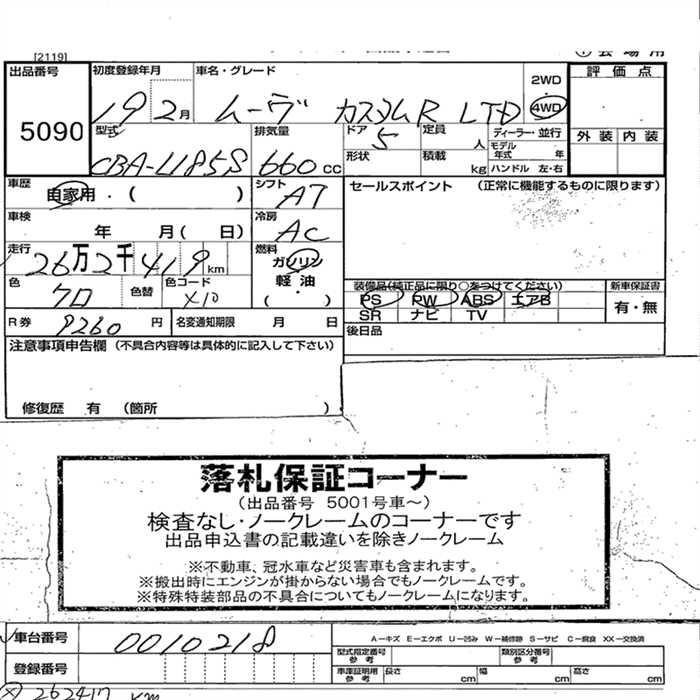 [2119]
出品番号 5090
初度登録年月 19 2月
車名・グレード ムーヴ カスタムR LTD
2WD
4WD
評価点
外装 内装
型式 CBA-L185S
排気量 660 cc
ドア 5
定員 人
ディーラー・並行
形状
積載 kg
モデル年式 年
ハンドル 左・右
車歴 自家用・( )
シフト AT
セールスポイント (正常に機能するものに限ります)
車検 年 月( 日)
冷房 AC
走行 26万2千419km
燃料 ガソリン
軽油
( ・ )
色 クロ
色替
色コード X10
装備品(純正品に限り○をつけてください)
新車保証書
PS PW ABS エアB
SR ナビ TV
有・無
R券 9260 円
名変通知期限 月 日
後日品
注意事項申告欄 (不具合内容等は具体的に記入して下さい)
修復歴 有 (箇所 )
落札保証コーナー
(出品番号 5001号車~)
検査なし・ノークレームのコーナーです
出品申込書の記載違いを除きノークレーム
※不動車、冠水車など災害車も含まれます。
※搬出時にエンジンが掛からない場合でもノークレームです。
※特殊特装部品の不具合についてもノークレームになります。
車台番号 0010218
A-キズ E-エクボ U-凹み W-補修跡 S-サビ C-腐食 XX-交換済
型式指定番号 参考
類別区分番号 参考
登録番号
車庫証明用 参考
長さ cm
幅 cm
高さ cm
262417 km